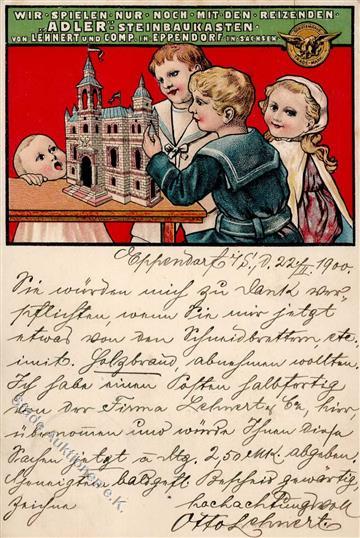 WIR SPIELEN NUR NOCH MIT DEN REIZENDEN
„ADLER" STEINBAUKASTEN
VON LEHNERT UND COMP. IN EPPENDORF IN SACHSEN
Eppendorf i/S., d. 22/II. 1900.
Sie würden mich zu Dank ver-
pflichten wenn Sie mir jetzt
etwas von den Schneidbrettern, etc.
imit. Holzbrand, abnehmen wollten.
Ich habe einen Posten halbfertig
von der Firma Lehnert & Co, hier
übernommen und würde Ihnen diese
Sachen jetzt a dtz. 2.50 Mk. abgeben.
Geneigten baldgefl. Bescheid gewärtig
zeichne hochachtungsvoll
Otto Lehnert.